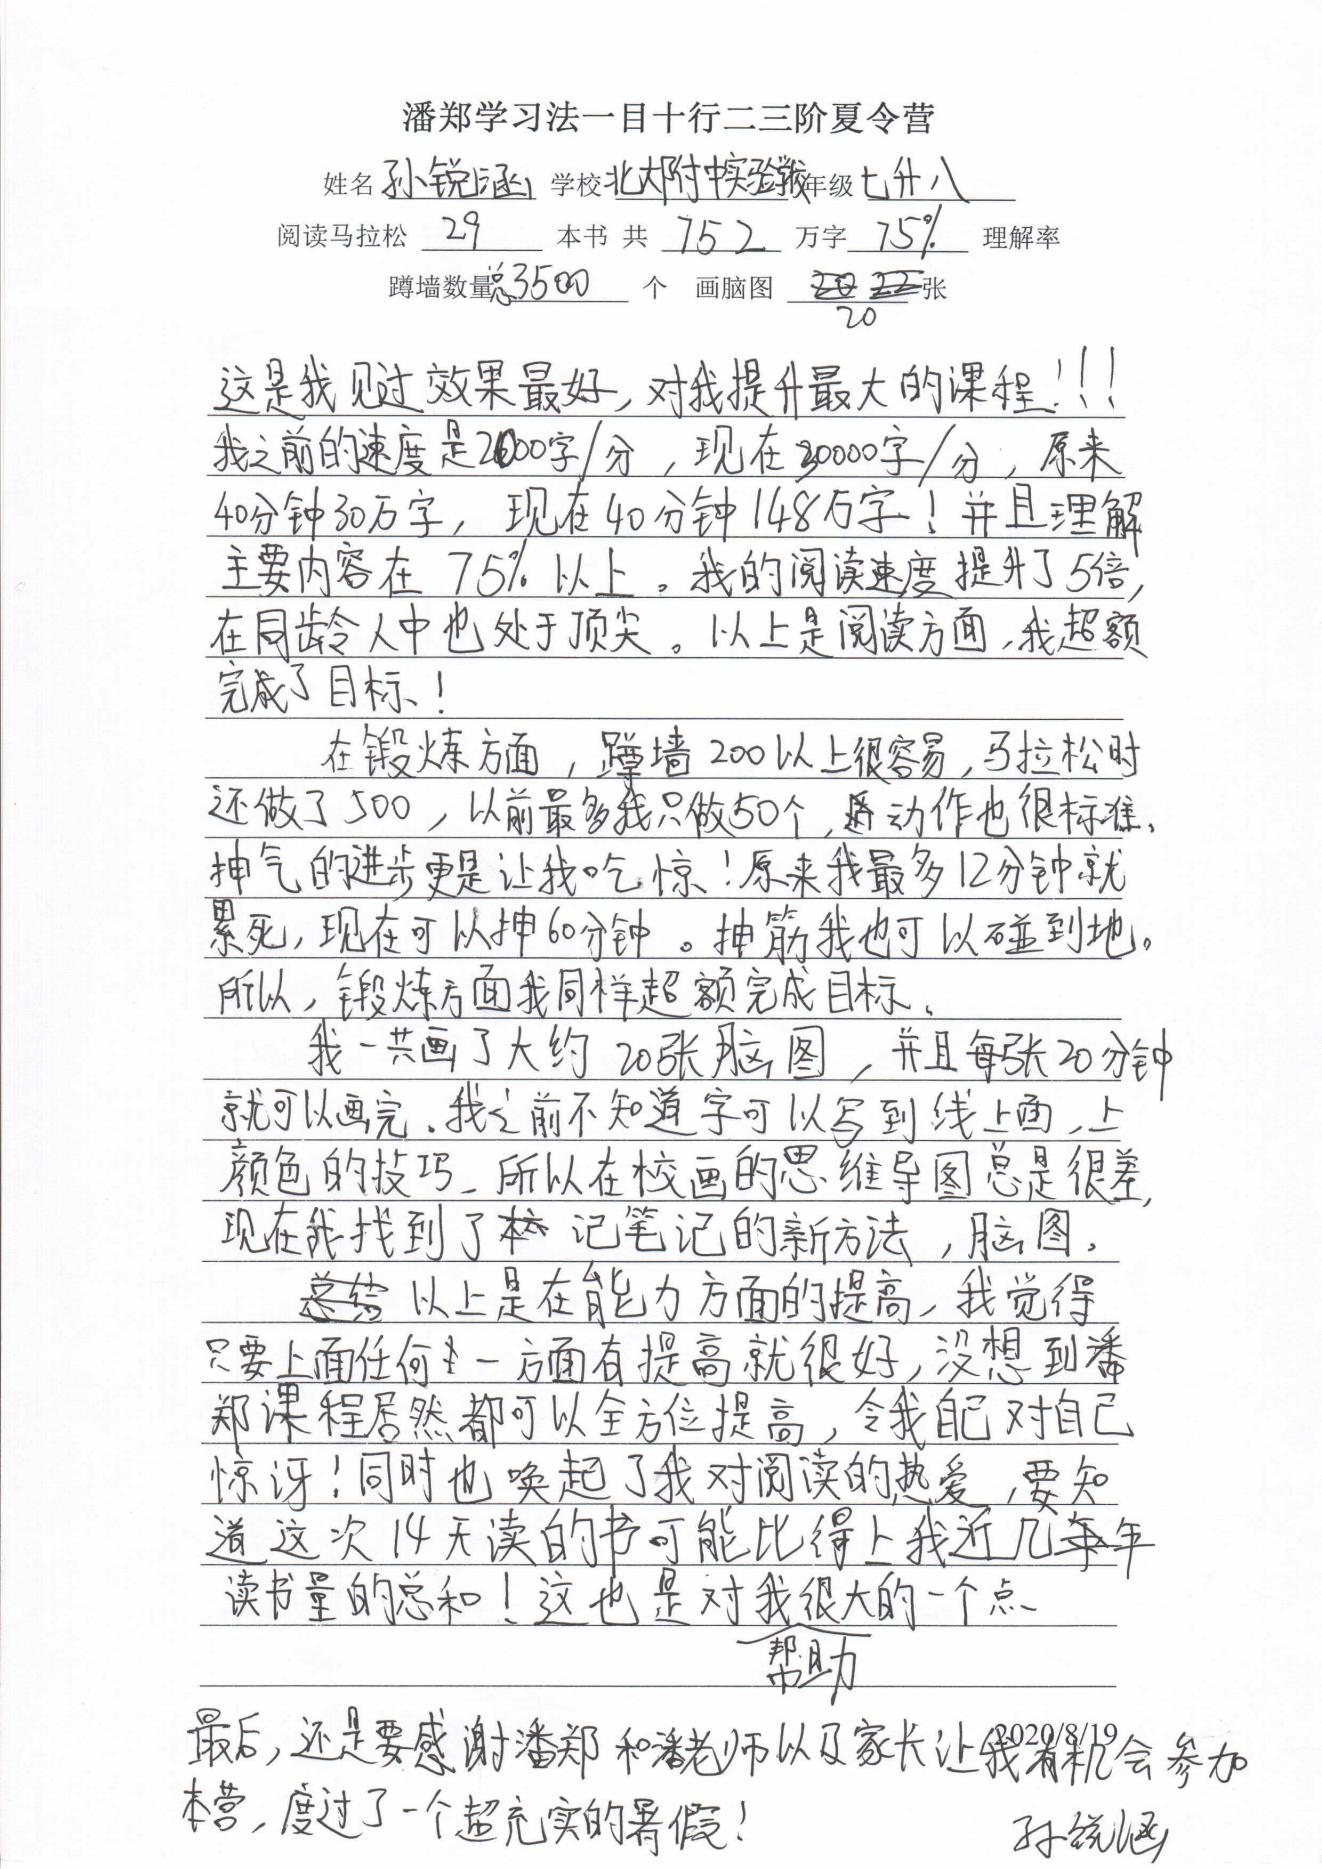 潘郑学习法一目十行二三阶夏令营
姓名 孙锐涵 学校 北大附中实验学校 年级 七升八
阅读马拉松 29 本书 共 752 万字 75% 理解率
蹲墙数量 总3500 个 画脑图 20 张
这是我见过效果最好,对我提升最大的课程!!!
我之前的速度是2000字/分,现在30000字/分,原来
40分钟30万字,现在40分钟148万字!并且理解
主要内容在75%以上。我的阅读速度提升了5倍,
在同龄人中也处于顶尖。以上是阅读方面,我超额
完成了目标!
在锻炼方面,蹲墙200以上很容易,马拉松时
还做了500,以前最多我只做50个,动作也很标准、
抻气的进步更是让我吃惊!原来我最多12分钟就
累死,现在可以抻60分钟。抻筋我也可以碰到地。
所以,锻炼方面我同样超额完成目标。
我一共画了大约20张脑图,并且每张20分钟
就可以画完。我之前不知道字可以写到线上面,上
颜色的技巧、所以在校画的思维导图总是很差,
现在我找到了记笔记的新方法,脑图。
以上是在能力方面的提高,我觉得
只要上面任何一方面有提高就很好,没想到潘
郑课程居然都可以全方位提高,令我自己对自己
惊讶!同时也唤起了我对阅读的热爱,要知
道这次14天读的书可能比得上我近几年
读书量的总和!这也是对我很大的一个点
帮助
最后,还是要感谢潘郑和潘老师以及家长让我有机会参加
2020/8/19
本营,度过了一个超充实的暑假!
孙锐涵